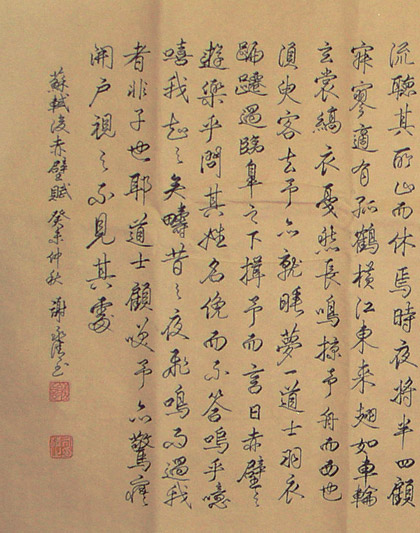 流聽其所止而休焉時夜將半四顧
寂寥適有孤鶴橫江東來翅如車輪
玄裳縞衣戛然長鳴掠予舟而西也
須臾客去予亦就睡夢一道士羽衣
蹁躚過臨皋之下揖予而言曰赤壁之
遊樂乎問其姓名俛而不答嗚乎噫
嘻我知之矣疇昔之夜飛鳴而過我
者非子也耶道士顧笑予亦驚寤
開戶視之不見其處
蘇軾後赤壁賦 癸未仲秋 謝書